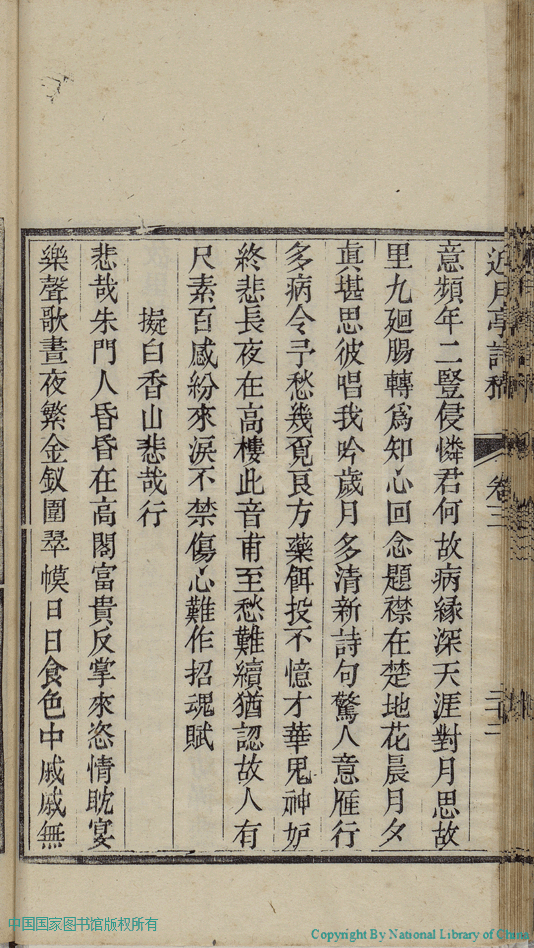 近月亭詩稿
卷三
二十二
意頻年二豎侵憐君何故病緣深天涯對月思故
里九廻腸轉爲知心回念題襟在楚地花晨月夕
眞堪思彼唱我吟歲月多清新詩句驚人意雁行
多病令予愁幾覓良方藥餌投不憶才華鬼神妒
終悲長夜在高樓此音甫至愁難續猶認故人有
尺素百感紛來淚不禁傷心難作招魂賦
擬白香山悲哉行
悲哉朱門人昏昏在高閣富貴反掌來恣情耽宴
樂聲歌晝夜繁金釵圍翠幙日日食色中戚戚無
中国国家图书馆版权所有
Copyright By National Library of China